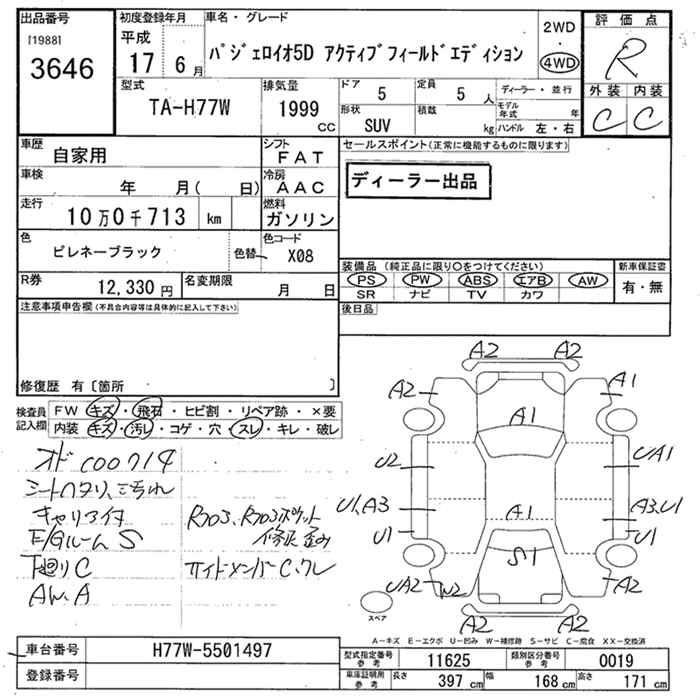 出品番号
[1988]
3646
初度登録年月
平成
17 6月
車名・グレード
パジェロイオ5D アクティブフィールドエディション
2WD
・
4WD
評価点
R
外装 内装
C C
型式
TA-H77W
排気量
1999
CC
ドア 5
定員 5 人
形状 SUV
積載 kg
ディーラー・並行
モデル年式 年
ハンドル 左・右
車歴
自家用
シフト
FAT
車検
年 月( 日)
冷房
AAC
走行
10万0千713 km
燃料
ガソリン
色
ピレネーブラック
色替
色コード
X08
R券
12,330円
名変期限
月 日
セールスポイント(正常に機能するものに限ります)
ディーラー出品
装備品 (純正品に限り○をつけてください)
PS PW ABS エアB AW
SR ナビ TV カワ
新車保証書
有・無
後日品
注意事項申告欄(不具合内容等は具体的に記入して下さい)
修復歴 有〔箇所 〕
検査員記入欄
FW キズ・飛石・ヒビ割・リペア跡・×要
内装 キズ・汚レ・コゲ・穴・スレ・キレ・破レ
オド C00714
シートヘタリ、こ汚れ
キャリア付
E/Gルーム S
下廻り C
AW.A
修正歪み
サイドメンバーC.クレ
A2 A2
A2 A1
A1
U2 UA1
U1,A3 A1 A3,U1
U1 U1
S1
UA2 W2 A2
A2 A2
スペア
A−キズ E−エクボ U−凹み W−補修跡 S−サビ C−腐食 XX−交換済
車台番号
H77W-5501497
登録番号
型式指定番号 参考
11625
類別区分番号 参考
0019
車庫証明用 参考
長さ 397 cm
幅 168 cm
高さ 171 cm